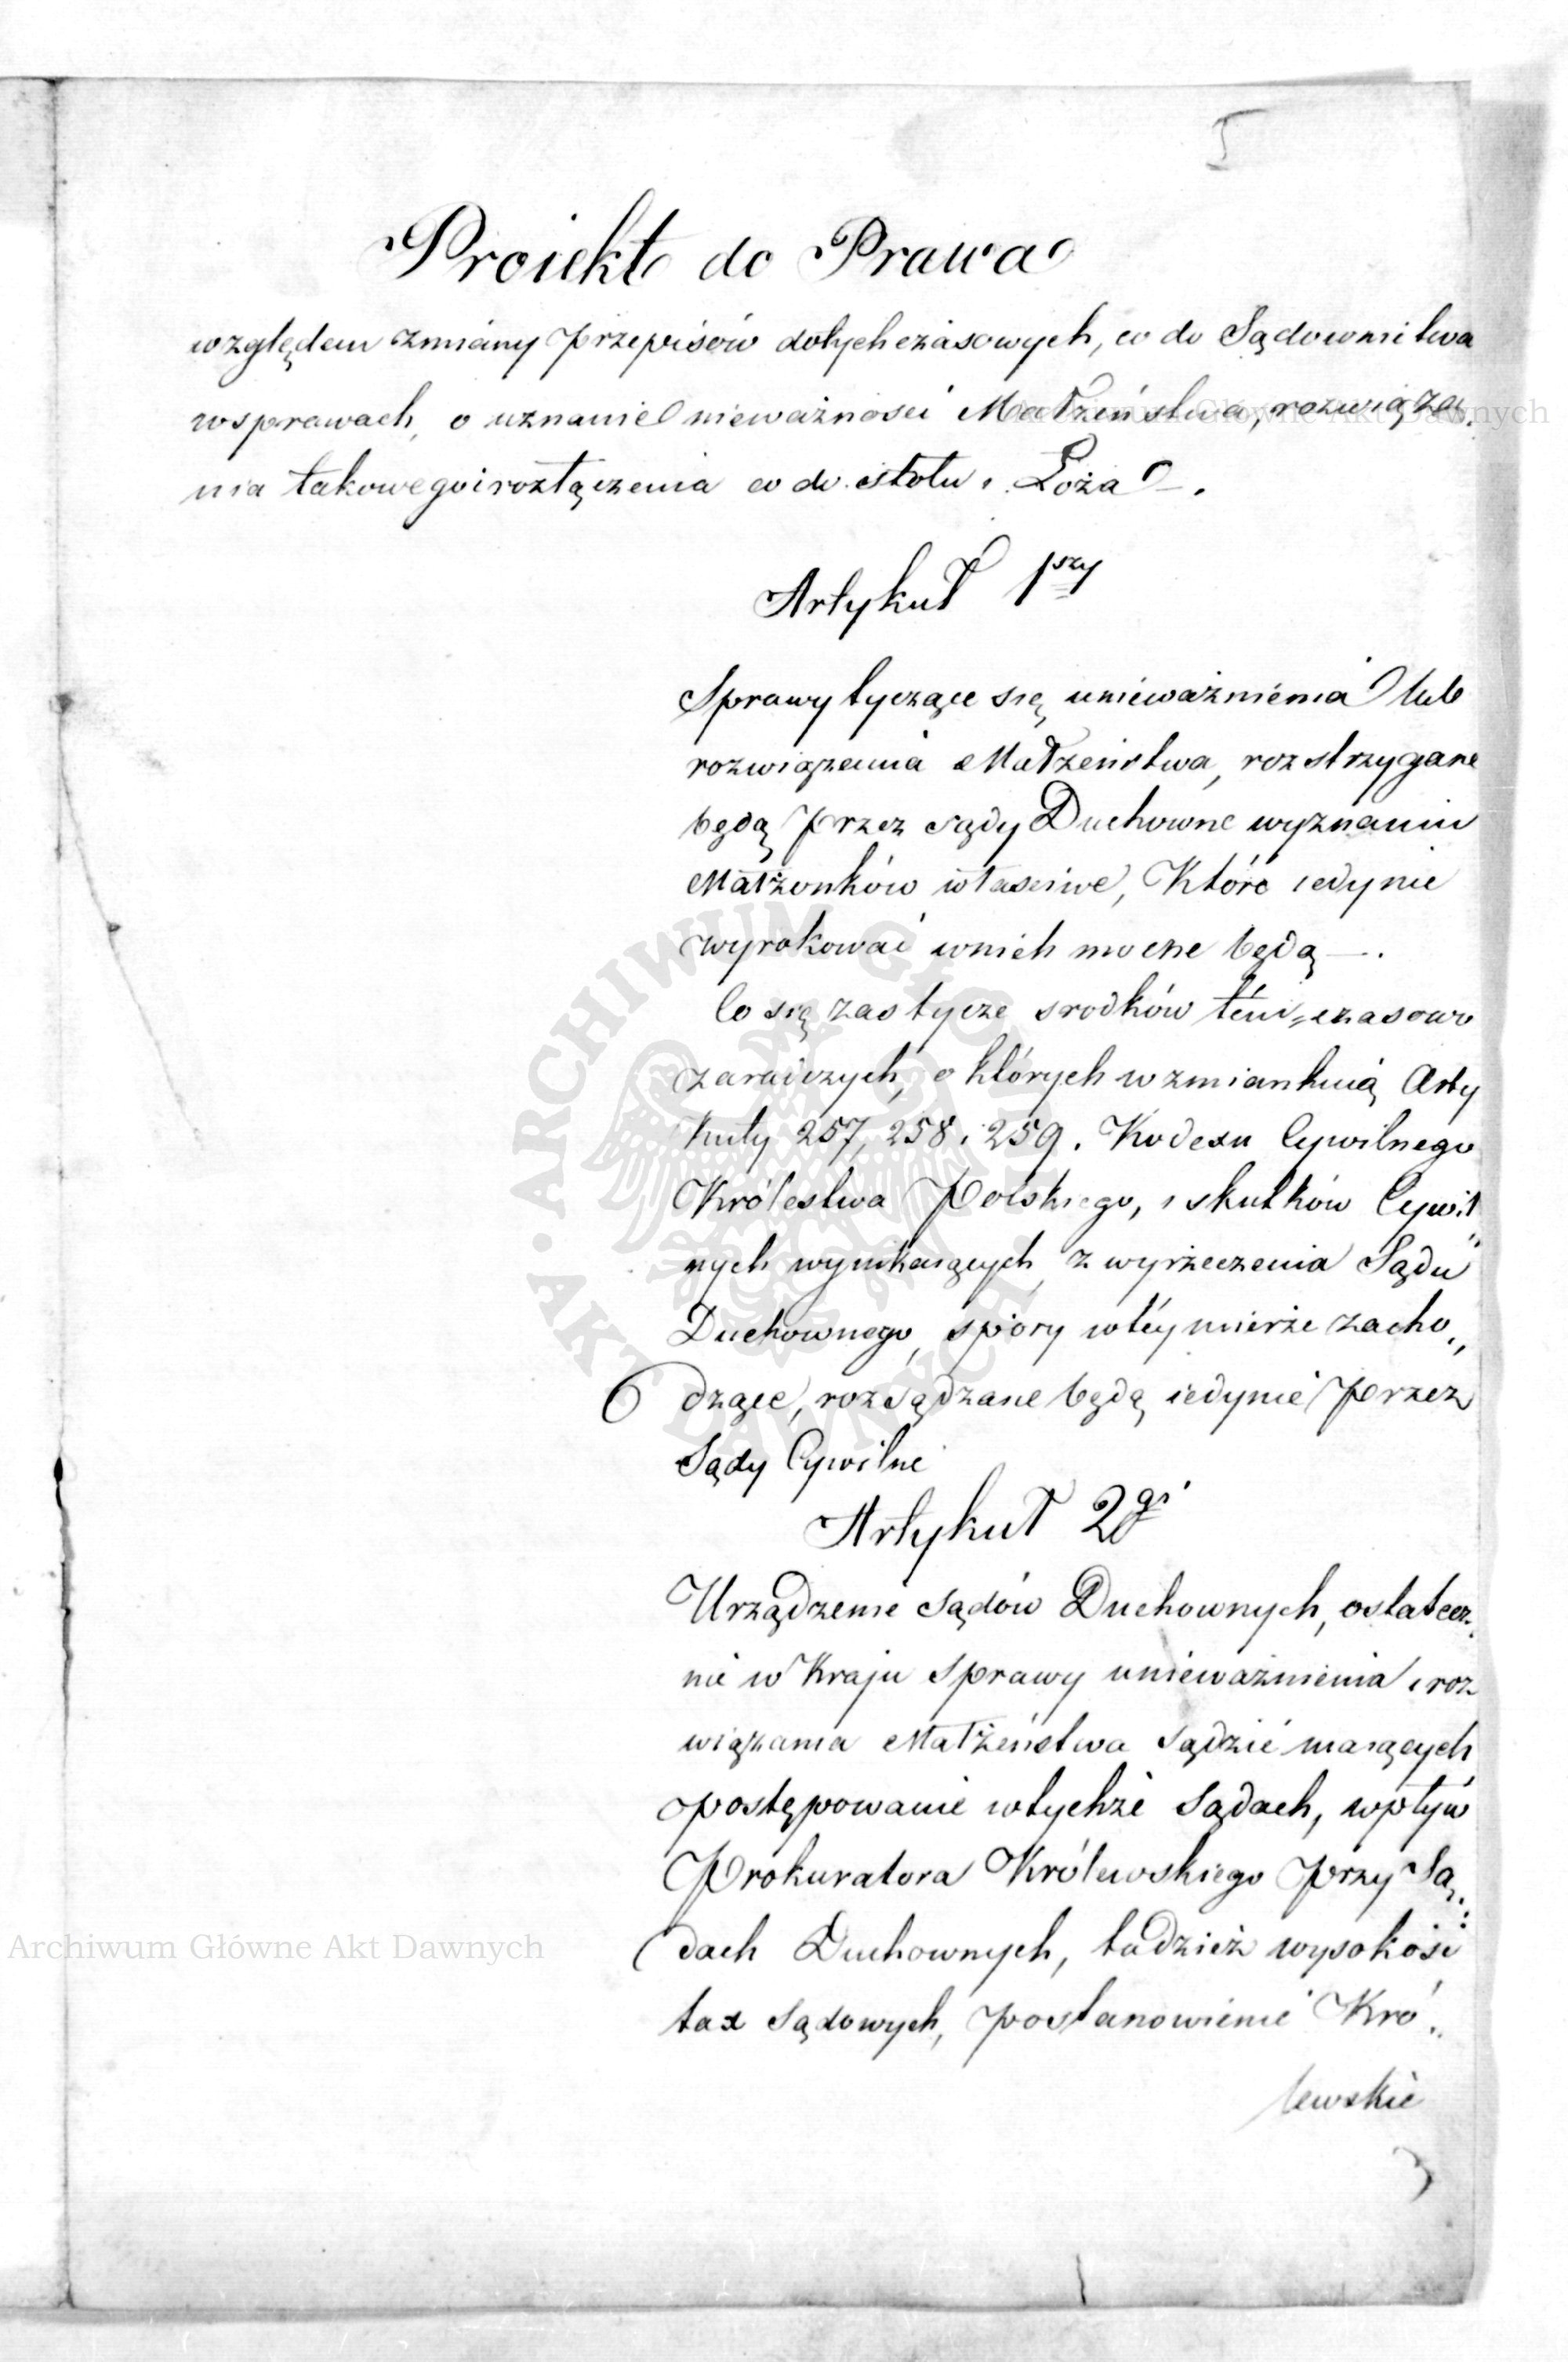 I
Proiekt do Prawa
względem zmiany przepisów dotychczasowych, co do Sądownictwa
w sprawach, o uznanie nieważności Małżeństwa, rozwiąza„
nia takowego i rozłączenia co do stołu i Łoża —.
Artykuł 1szy
Sprawy tyczące się unieważnienia lub
rozwiązania Małżeństwa, rozstrzygane
będą przez sądy Duchowne wyznaniu
Małżonków właściwe, które iedynie
wyrokować w nich mocne będą —.
Co się zastycze srodków tém„czasowo
zaradczych, o których wzmiankuią Arty
kuły 257, 258 i 259. Kodexu Cywilnego
Królestwa Polskiego, i skutków Cywil„
nych wynikaiących z wyrzeczenia Sądu
Duchownego, spory w téy mierze zacho„
dzące, rozsądzane będą iedynie przez
Sądy Cywilne
Artykuł 2gi
Urządzenie sądów Duchownych, ostatecz„
nie w Kraju sprawy unieważnienia i roz
wiązania Małżeństwa sądzić maiących
postępowanie w tychże Sądach, wpływ
Prokuratora Królewskiego przy Są„
dach Duchownych, tudzież wysokość
tax sądowych, postanowienie Kró„
lewskie
3
Archiwum Główne Akt Dawnych
Archiwum Główne Akt Dawnych
ARCHIWUM GŁÓWNE · AKT DAWNYCH ·